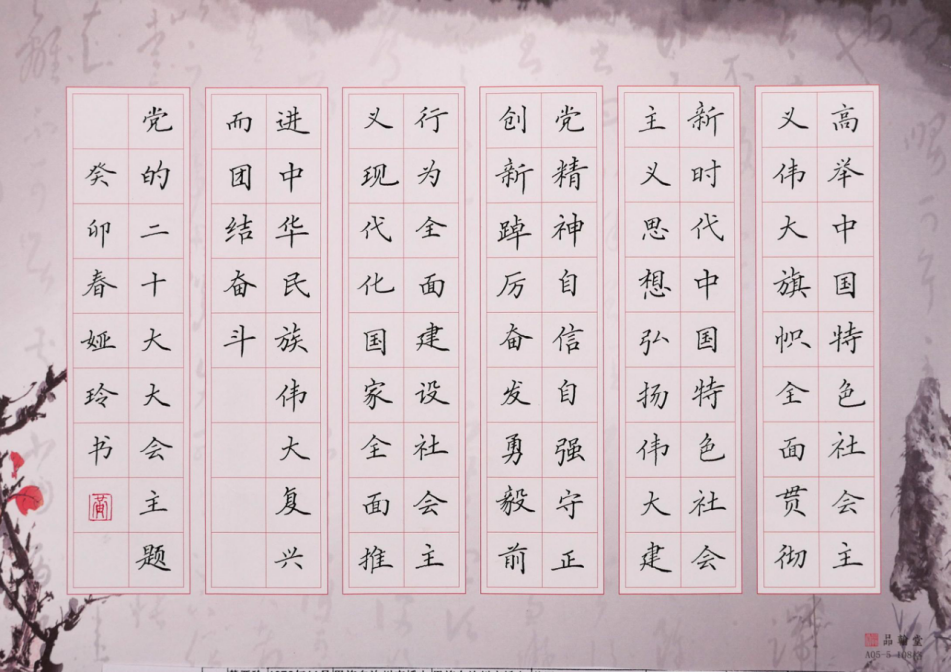 高举中国特色社会主
义伟大旗帜全面贯彻
新时代中国特色社会
主义思想弘扬伟大建
党精神自信自强守正
创新踔厉奋发勇毅前
行为全面建设社会主
义现代化国家全面推
进中华民族伟大复兴
而团结奋斗
党的二十大大会主题
癸卯春娅玲书
黄
品翰堂